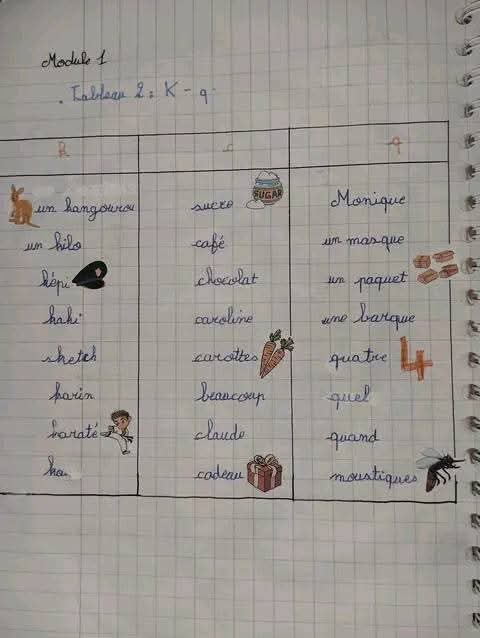 Module 1
. Tableau 2 : K - q.
k c q
un kangourou sucre SUGAR Monique
un kilo café un masque
képi chocolat un paquet
kaki caroline une barque
sketch carottes quatre 4
karin beaucoup quel
karaté claude quand
cadeau moustiques